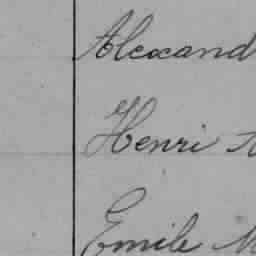 Alexand
Henri
Emile M